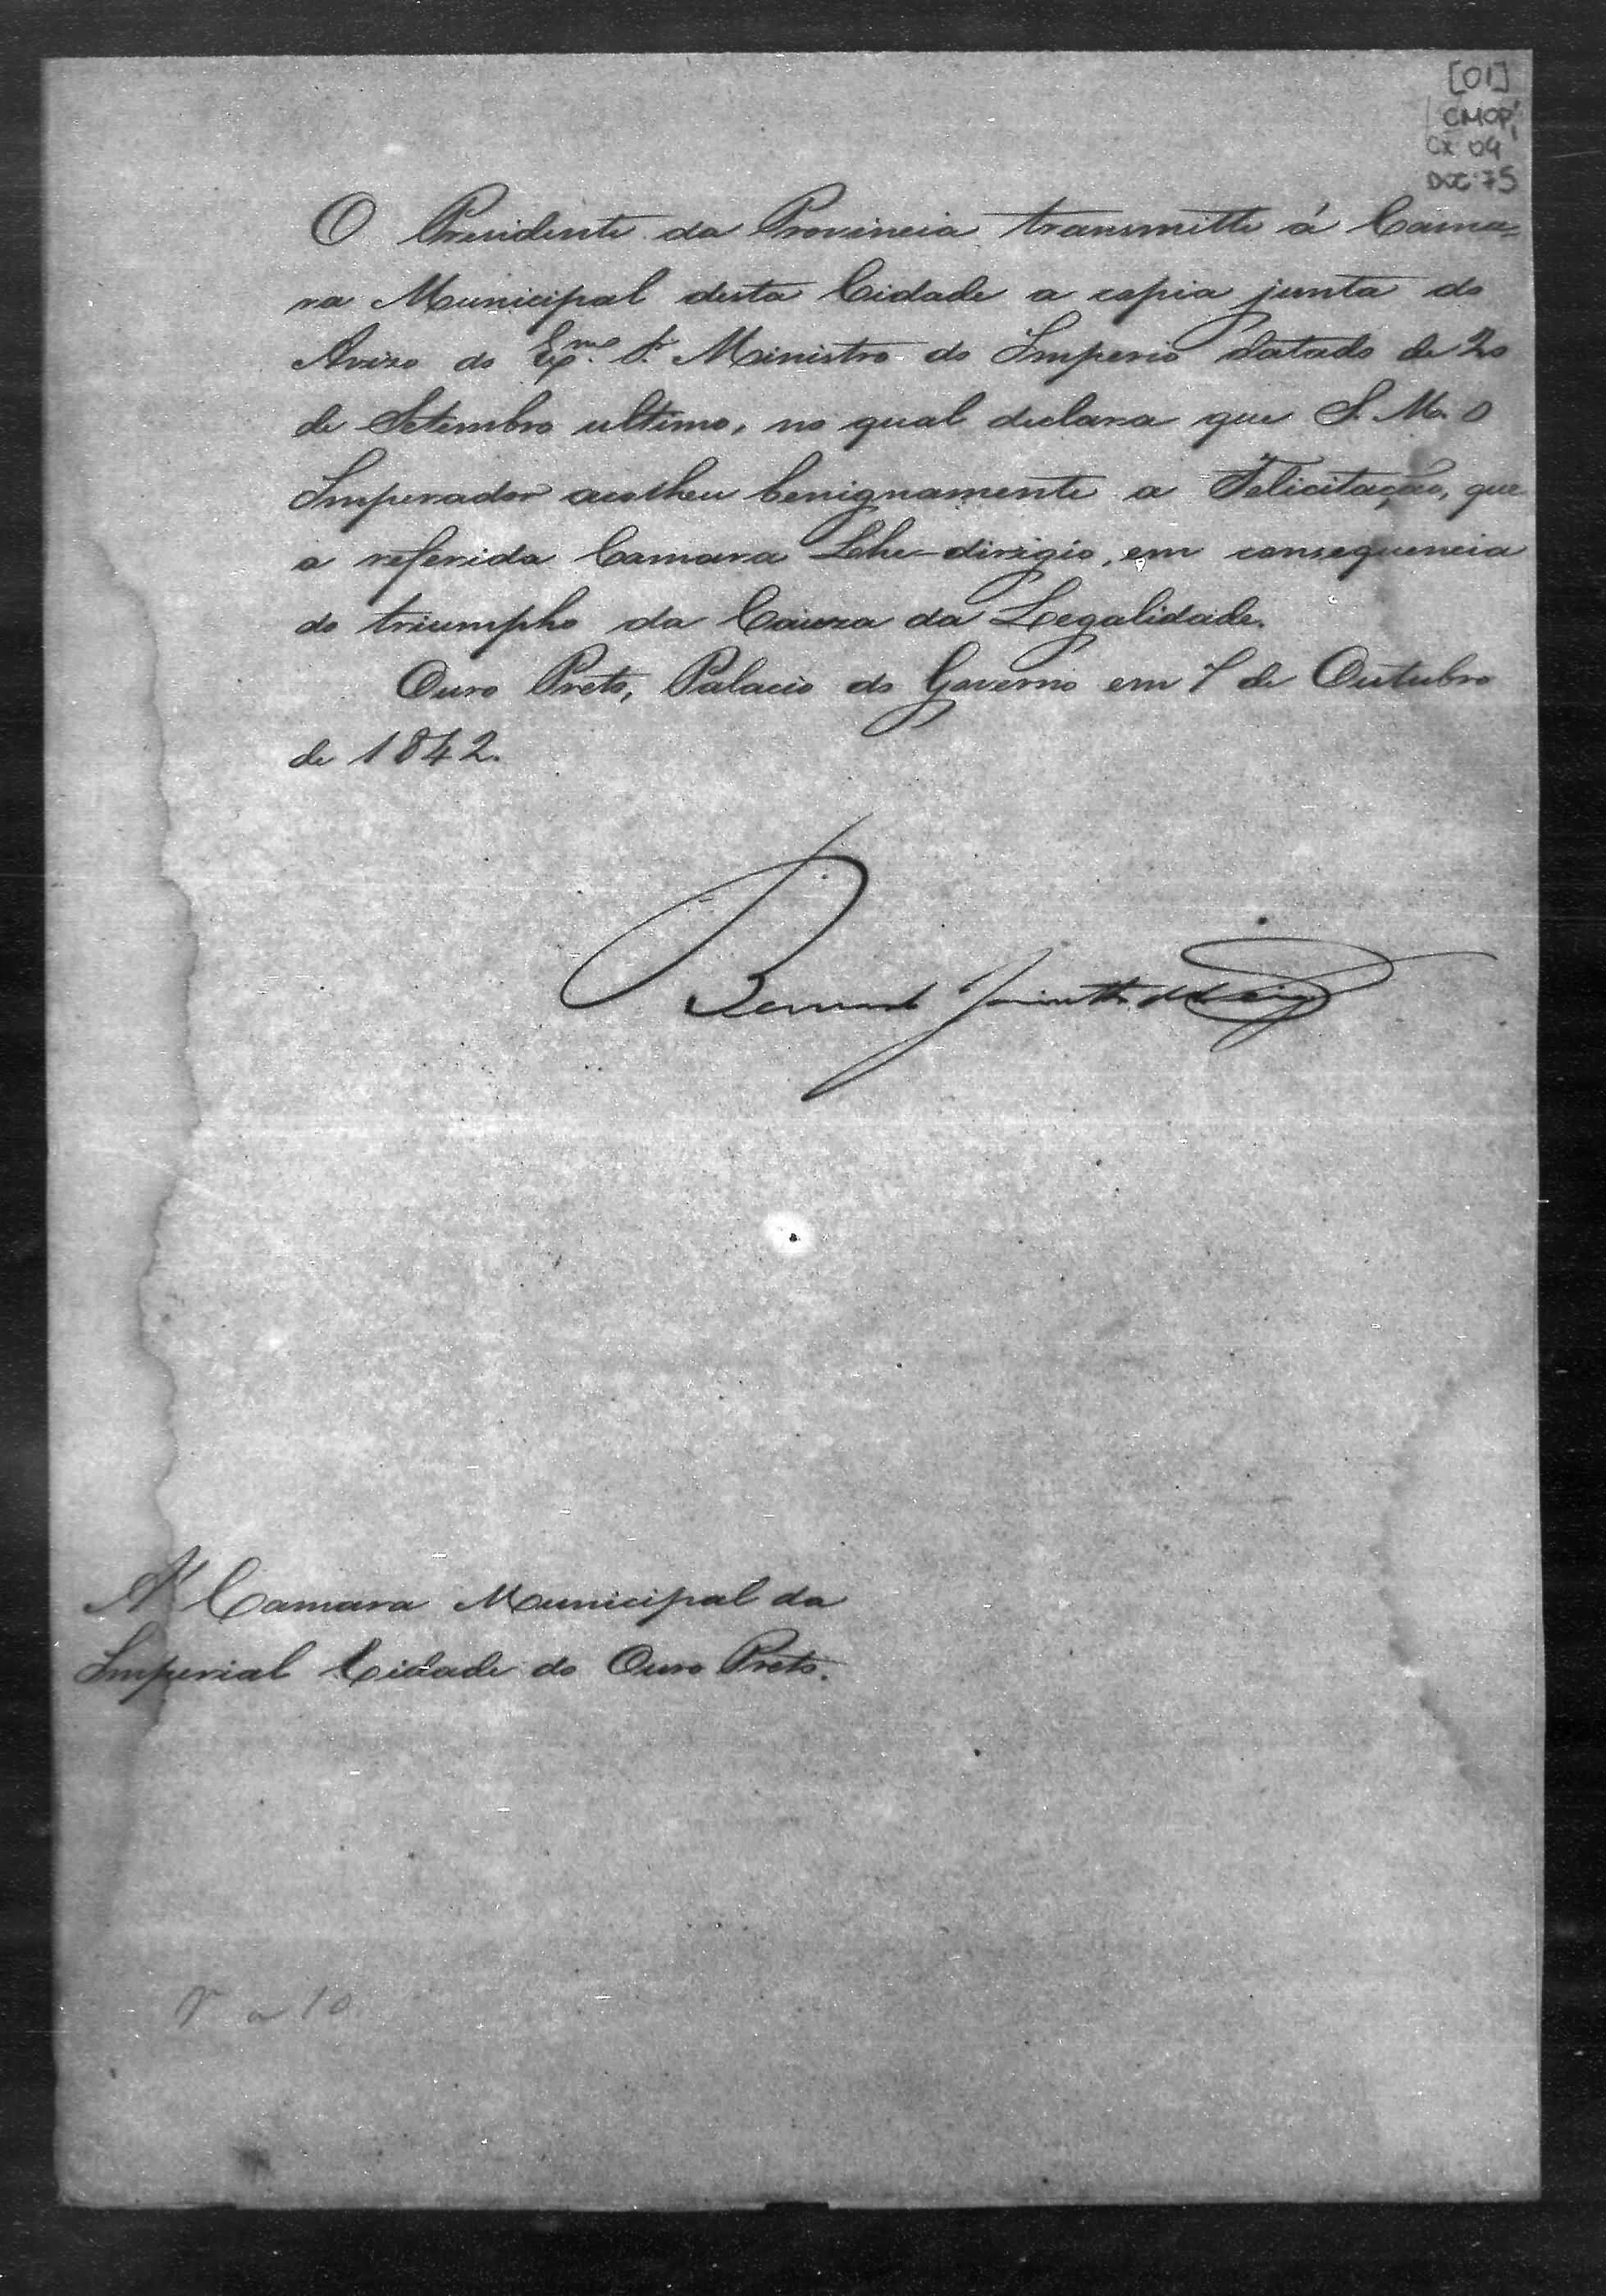 [01]
CMOP
Cx 04
DOC 75
O Presidente da Provincia transmitte á Cama=
ra Municipal desta Cidade a copia junta do
Avizo do Exmo. Sr. Ministro do Imperio datado de 20
de Setembro ultimo, no qual declara que S. M. O
Imperador acolheu benignamente a Felicitação, que
a referida Camara Lhe-dirigio, em consequencia
do triumpho da Cauza da Legalidade.
Ouro Preto, Palacio do Governo em 7 de Outubro
de 1842.
Bernardo Jacintho da Veiga
A' Camara Municipal da
Imperial Cidade do Ouro Preto.